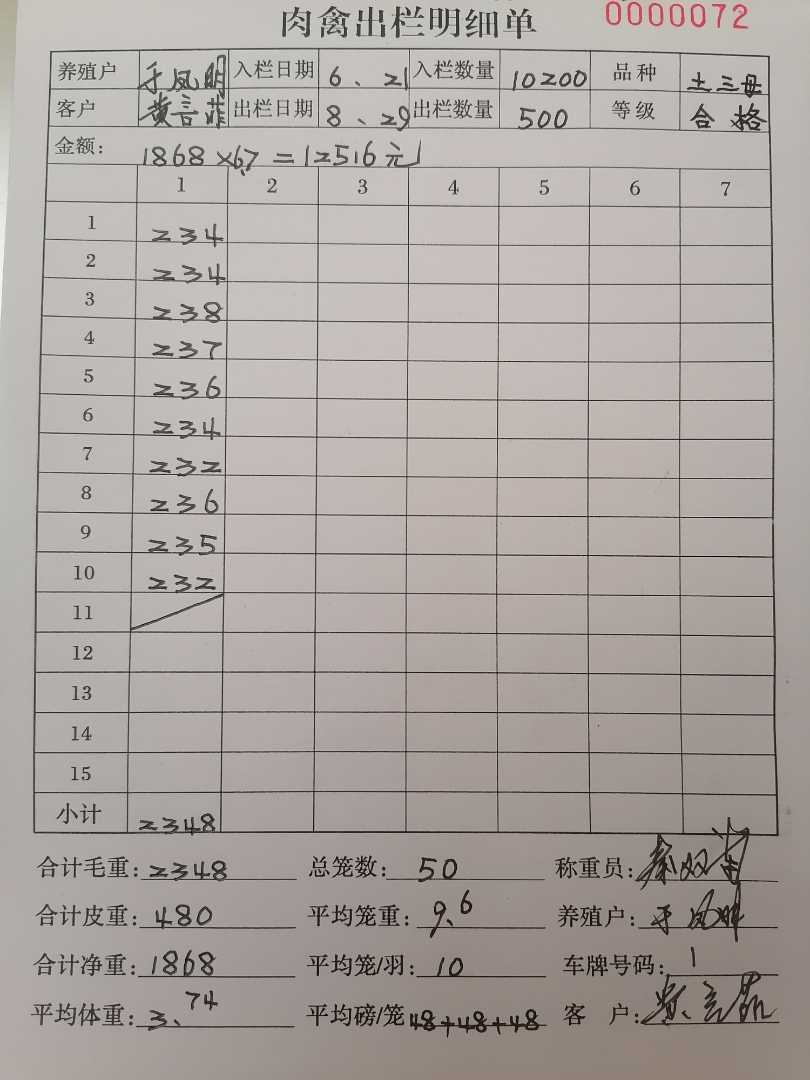 肉禽出栏明细单 0000072
养殖户 于凤明 入栏日期 6、21 入栏数量 10200 品种 土三母
客户 黄言菲 出栏日期 8、29 出栏数量 500 等级 合格
金额: 1868×6.7=12516元
1 2 3 4 5 6 7
1 234
2 234
3 238
4 237
5 236
6 234
7 232
8 236
9 235
10 232
11
12
13
14
15
小计 2348
合计毛重: 2348 总笼数: 50 称重员:
合计皮重: 480 平均笼重: 9.6 养殖户: 于凤明
合计净重: 1868 平均笼/羽: 10 车牌号码: 1
平均体重: 3.74 平均磅/笼 48+48+48 客户: 黄言菲